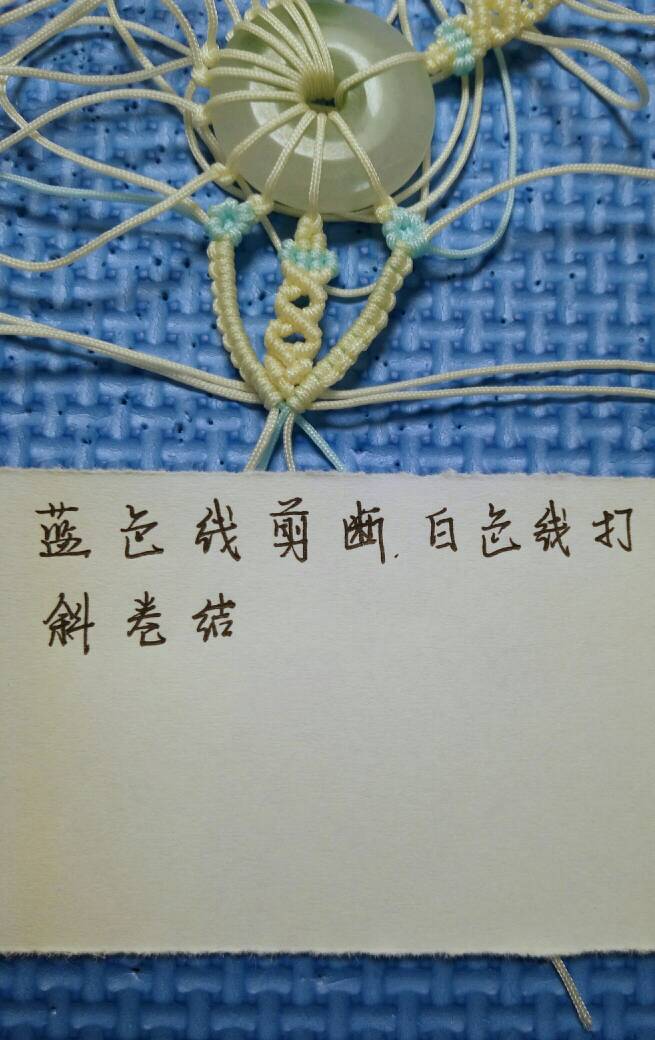 蓝色线剪断.白色线打
斜卷结